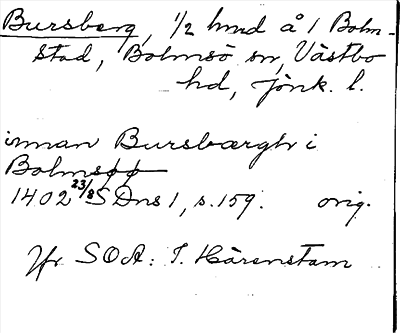 Bursberg, 1/2 hmd å / Bolm-
stad, Bolmsö sn, Västbo
hd, Jönk. l.
innan Bursbærgh i
Bolmsøø
1402 23/8 SDns 1, s. 159. orig.
Jfr SOA: I. Härenstam